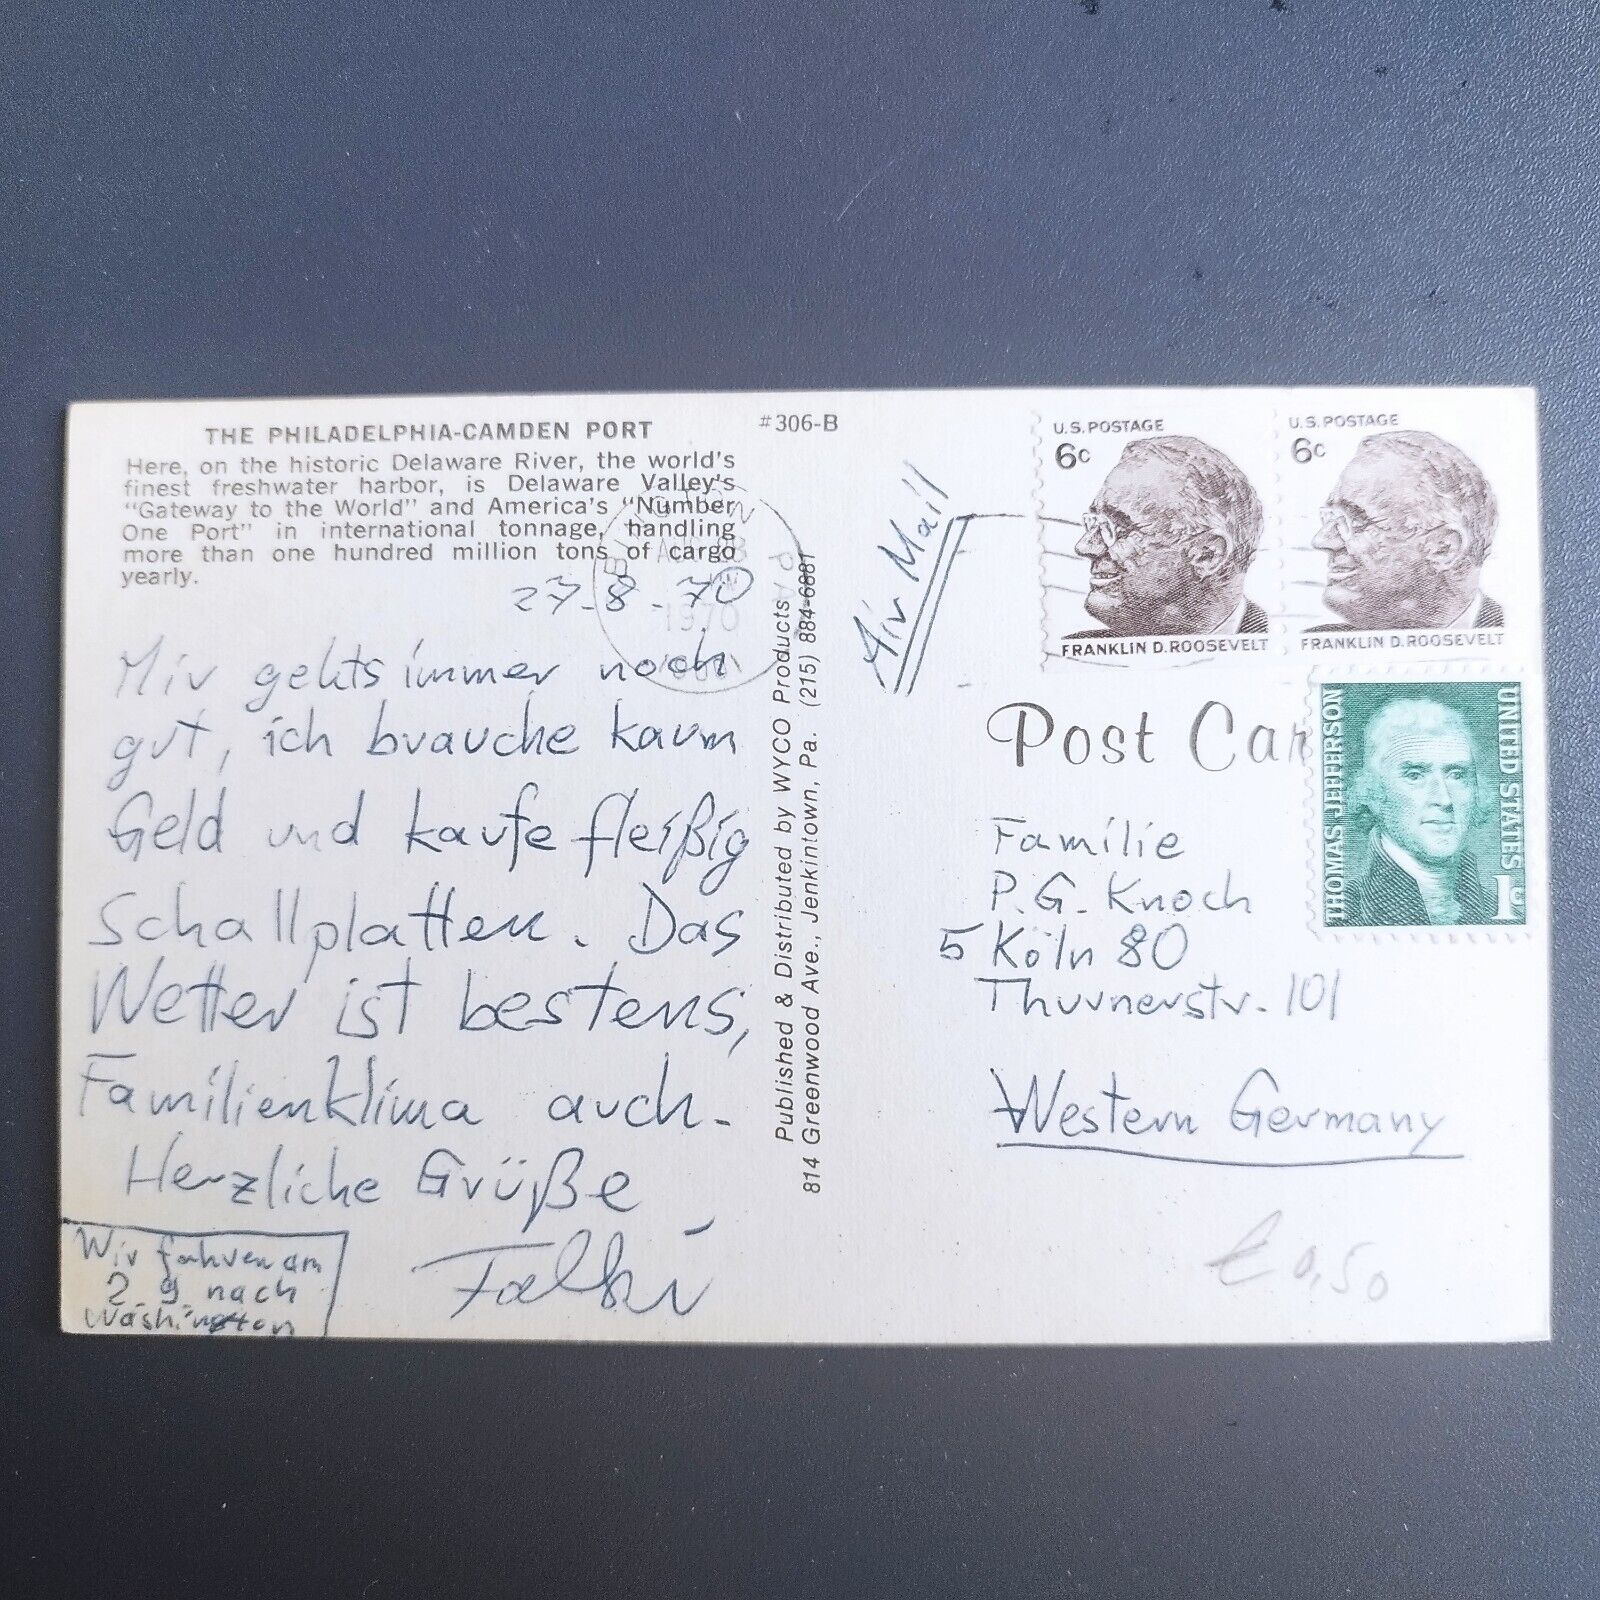 THE PHILADELPHIA-CAMDEN PORT
Here, on the historic Delaware River, the world's
finest freshwater harbor, is Delaware Valley's
"Gateway to the World" and America's "Number
One Port" in international tonnage, handling
more than one hundred million tons of cargo
yearly.
#306-B
AUG 28
1970
27.8.70
Mir gehts immer noch
gut, ich brauche kaum
Geld und kaufe fleißig
Schallplatten. Das
Wetter ist bestens,
Familienklima auch.
Herzliche Grüße
Wir fahren am
2.9 nach
Washington
Published & Distributed by WYCO Products
814 Greenwood Ave., Jenkintown, Pa. (215) 884-6881
Air Mail
U.S. POSTAGE
6c
FRANKLIN D. ROOSEVELT
U.S. POSTAGE
6c
FRANKLIN D. ROOSEVELT
THOMAS JEFFERSON
UNITED STATES
1c
Post Car
Familie
P.G. Knoch
5 Köln 80
Thurnerstr. 101
Western Germany
€ 0,50